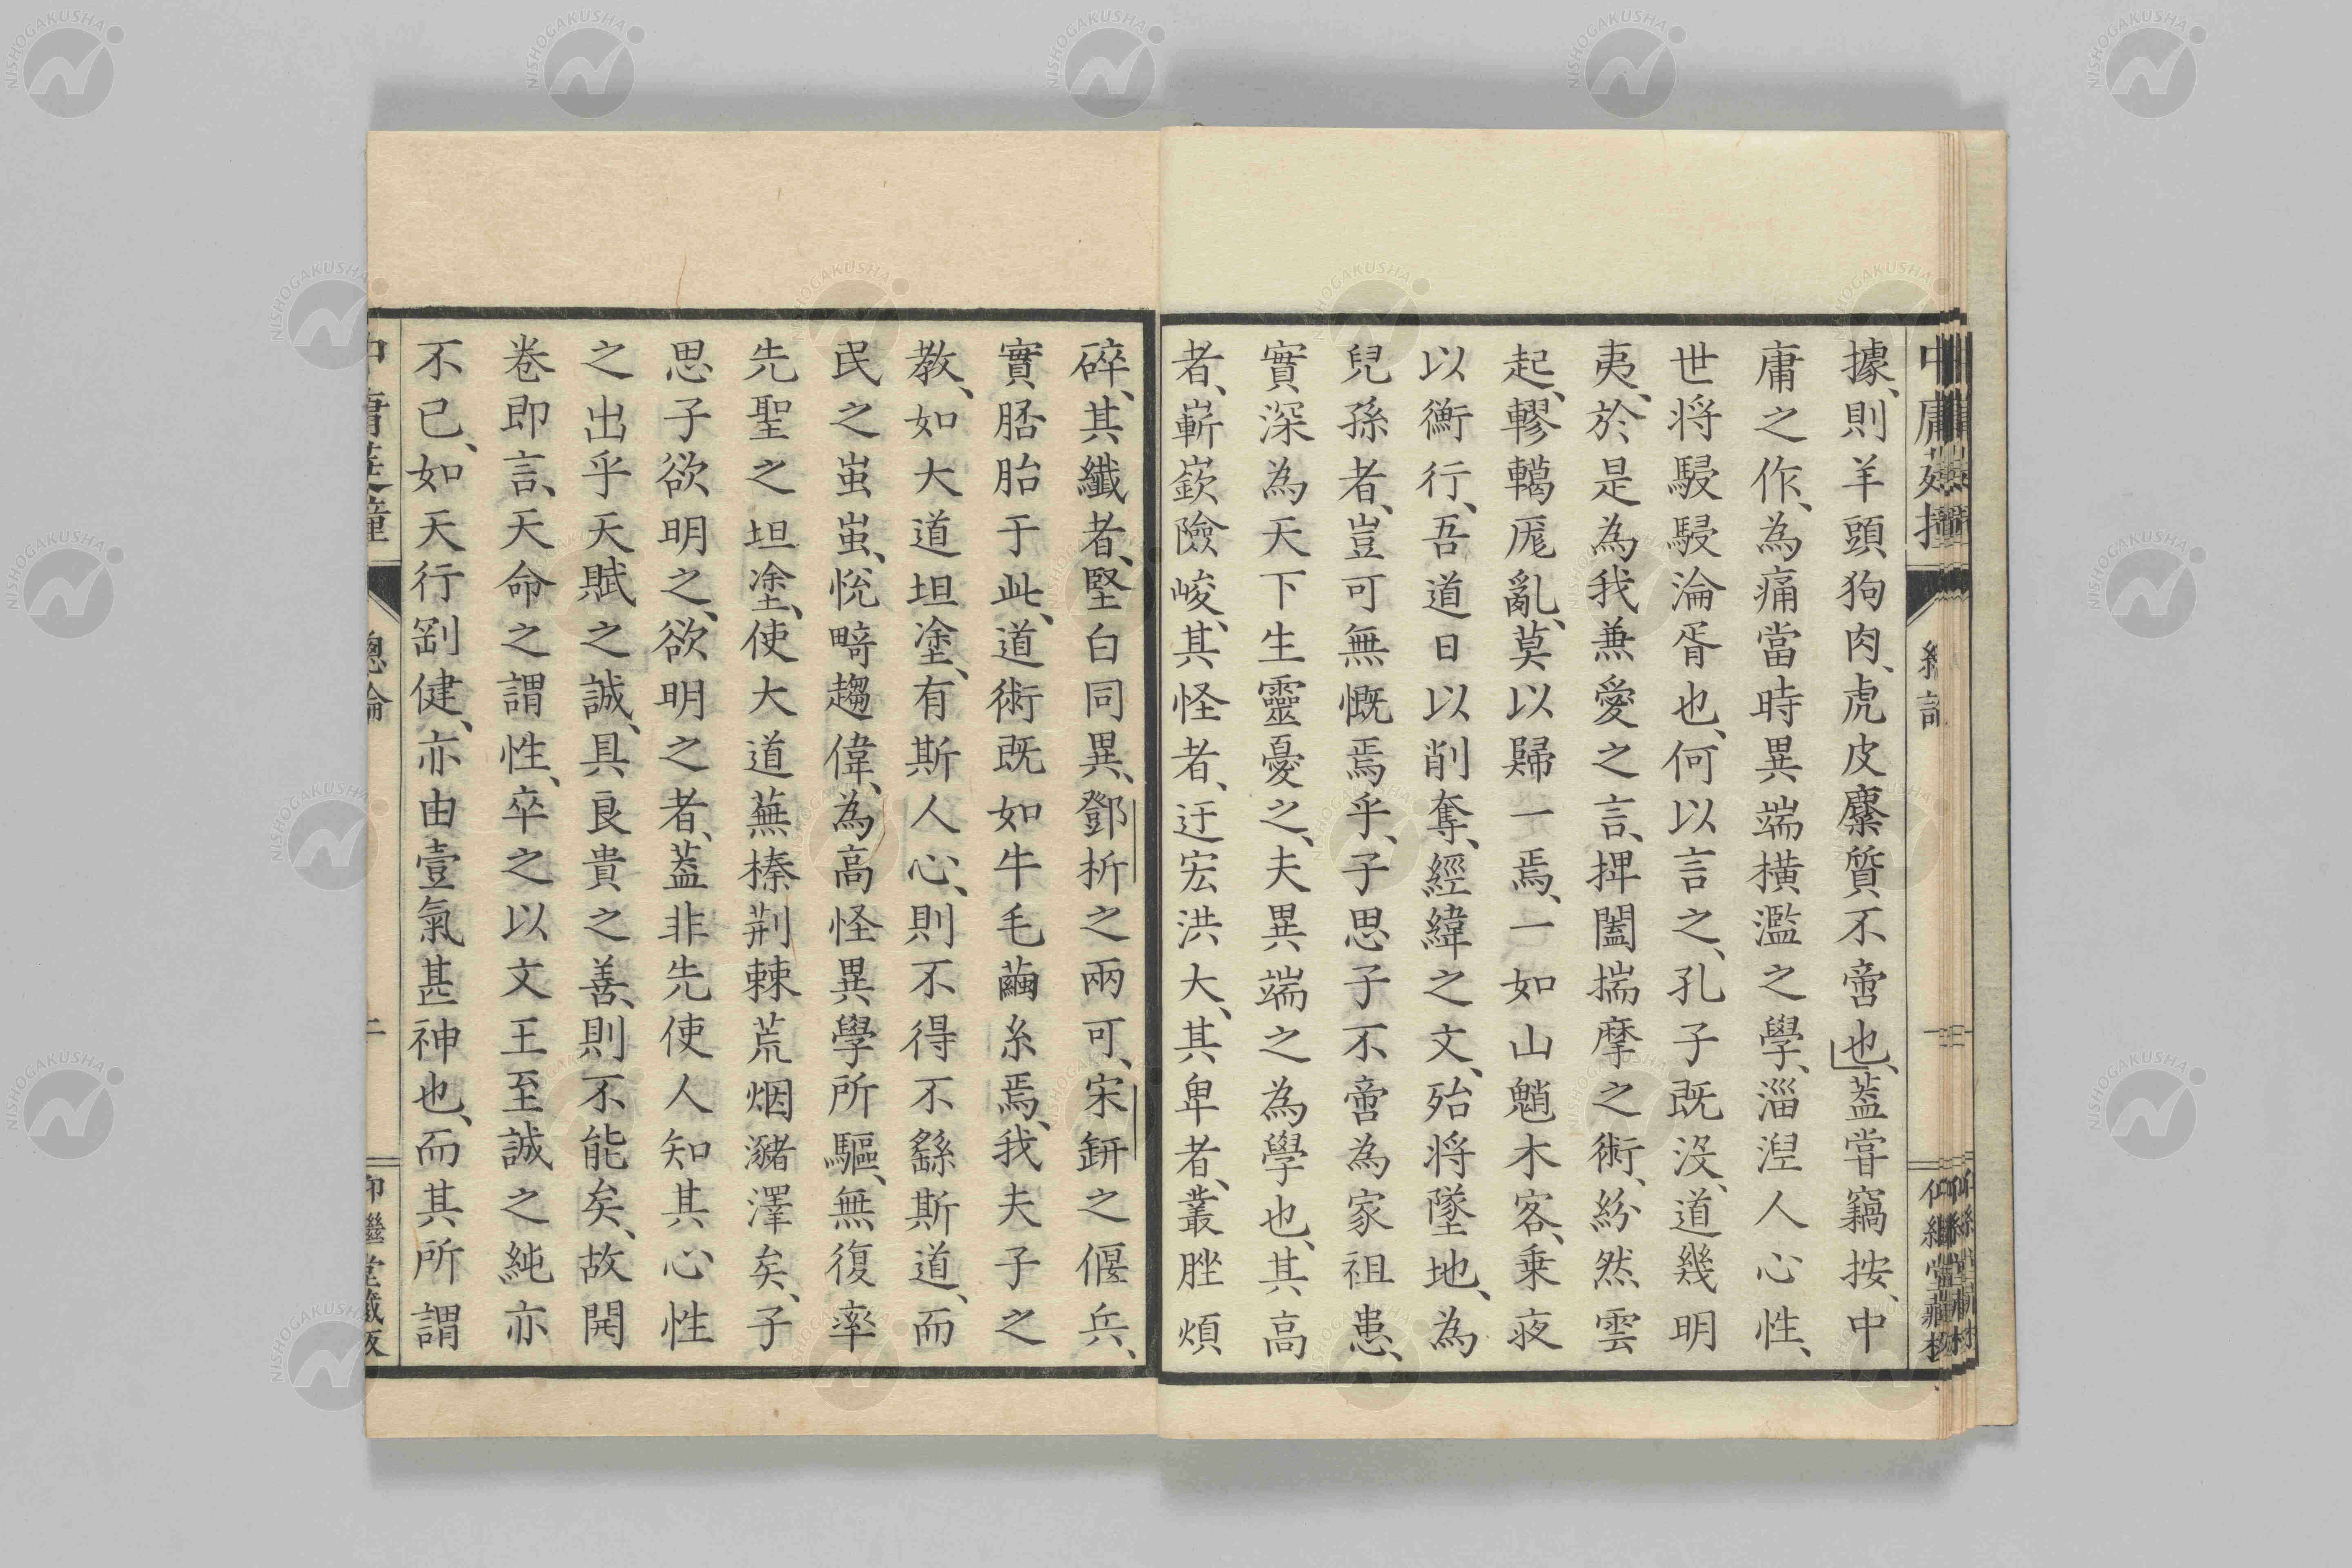 據、則羊頭狗肉、虎皮麋質不啻也、蓋嘗竊按、中
庸之作、為痛當時異端橫濫之學、淄涅人心性、
世将駸駸淪胥也、何以言之、孔子既沒、道幾明
夷、於是為我兼愛之言、捭闔揣摩之術、紛然雲
起、轇轕厖亂、莫以歸一焉、一如山魈木客、乘夜
以衡行、吾道日以削奪、經緯之文、殆将墜地、為
兒孫者、豈可無慨焉乎、子思子不啻為家祖患、
實深為天下生靈憂之、夫異端之為學也、其高
者、嶄嶔險峻、其怪者、迂宏洪大、其卑者、叢脞煩
碎、其纖者、堅白同異、鄧析之兩可、宋鈃之偃兵、
實胚胎于此、道術既如牛毛繭糸焉、我夫子之
教、如大道坦塗、有斯人心、則不得不繇斯道、而
民之蚩蚩、怳畸趨偉、為高怪異學所驅、無復率
先聖之坦塗、使大道蕪榛荆棘荒烟瀦澤矣、子
思子欲明之、欲明之者、蓋非先使人知其心性
之出乎天賦之誠、具良貴之善、則不能矣、故開
卷即言、天命之謂性、卒之以文王至誠之純亦
不已、如天行剛健、亦由壹氣甚神也、而其所謂
總論
NISHOGAKUSHA